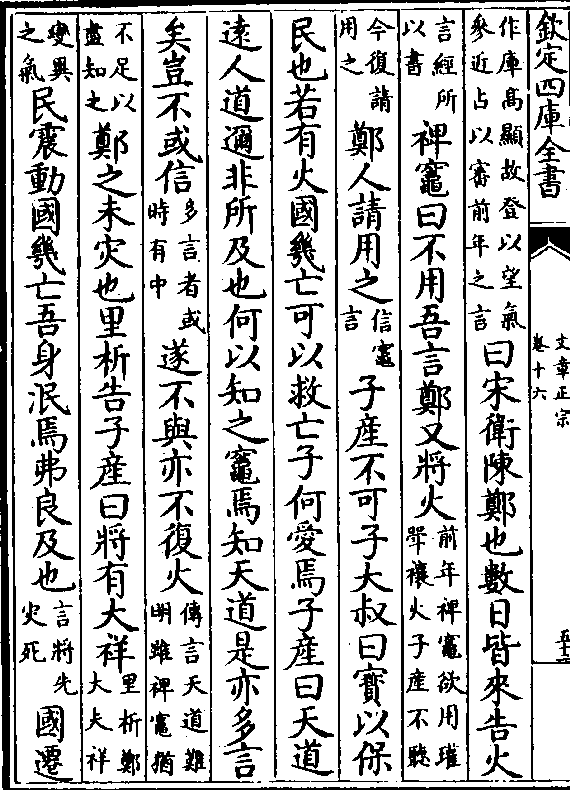 欽定四庫全書
文章正宗
卷十六
五十二
作庫高顯故登以望氣
參近占以審前年之言
曰宋衛陳鄭也數日皆來告火
言經所
以書
裨竈曰不用吾言鄭又將火
前年裨竈欲用瓘
斚禳火子產不聽
今復請
用之
鄭人請用之
信竈
言
子產不可子大叔曰寳以保
民也若有火國幾亡可以救亡子何愛焉子產曰天道
逺人道邇非所及也何以知之竈焉知天道是亦多言
矣豈不或信
多言者或
時有中
遂不與亦不復火
傳言天道難
明雖裨竈猶
不足以
盡知之
鄭之未災也里析告子產曰將有大祥
里析鄭
大夫祥
變異
之氣
民震動國幾亡吾身泯焉弗良及也
言將先
災死
國遷